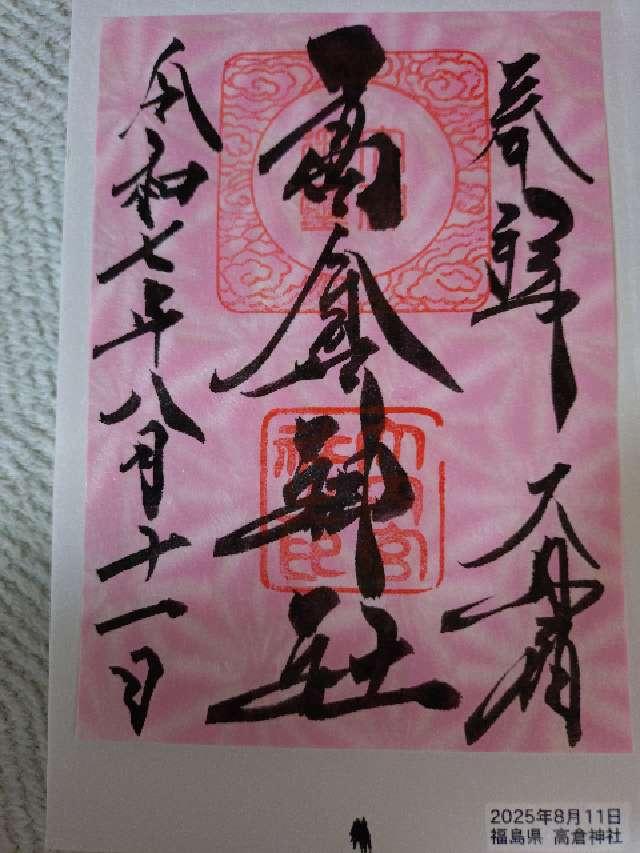 奉拝
高倉神社
令和七年八月十一日
2025年8月11日
福島県 高倉神社